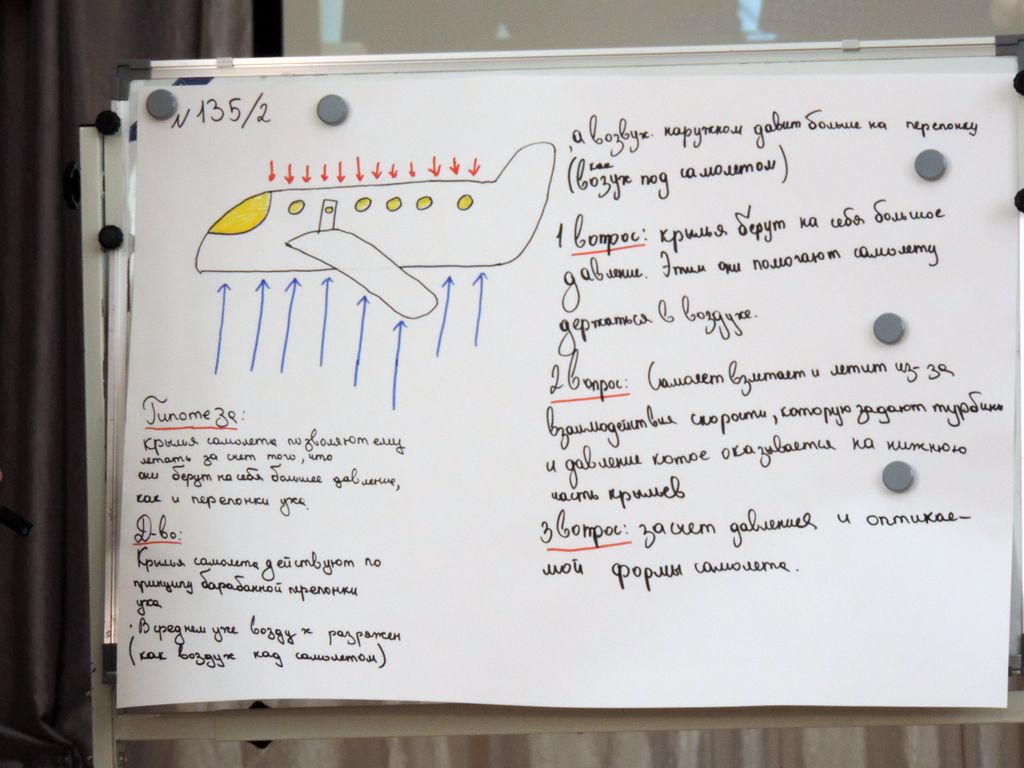 N 135/2
Гипотеза:
крылья самолета позволяют ему
летать за счет того, что
они берут на себя большее давление,
как и перепонки уха.
Д-во:
Крылья самолета действуют по
принципу барабанной перепонки
уха
· В среднем ухе воздух разряжен
(как воздух над самолетом)
, а возвух. наружном давит больше на перепонку
(как возух под самолетом)
1 вопрос: крылья берут на себя большое
давление. Этим они помогают самолету
держаться в воздухе.
2 вопрос: Самолет взлетает и летит из-за
взаимодействия скорости, которую задают турбины
и давление котое оказывается на нижнюю
часть крыльев
3 вопрос: за счет давления и оптикае-
мой формы самолета.